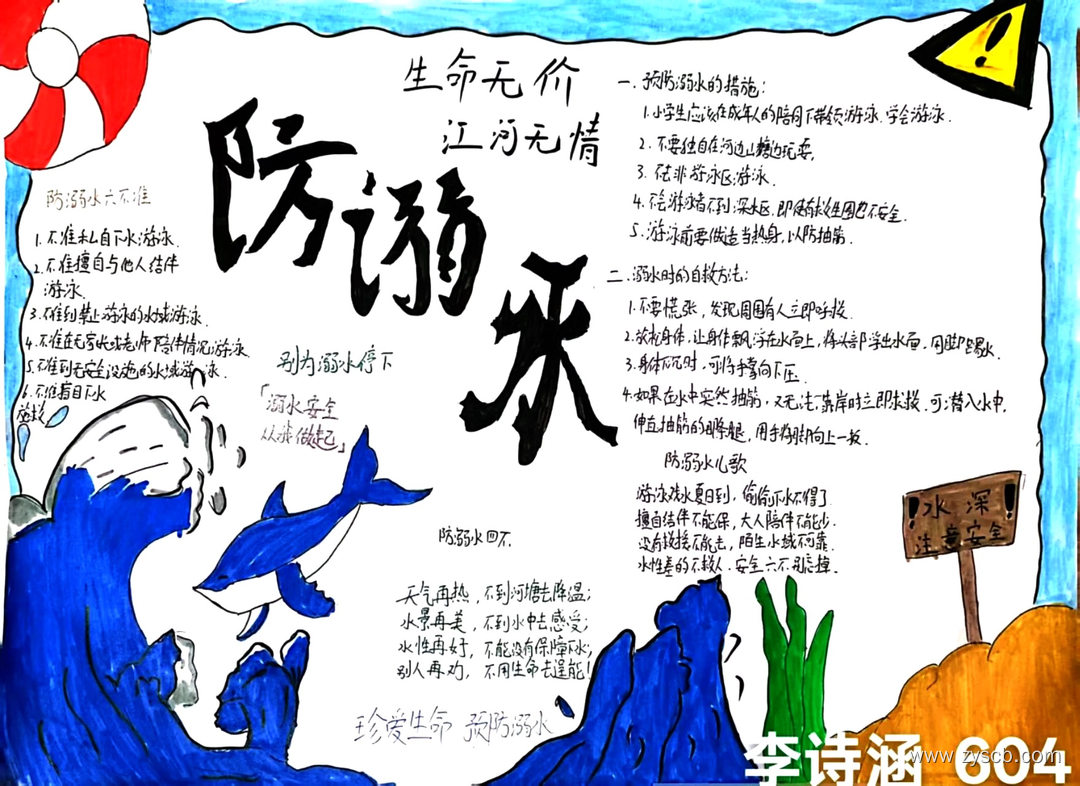 生命无价
江河无情
防溺水
防溺水六不准
1.不准私自下水游泳.
2.不准擅自与他人结伴
游泳.
3.不准到禁止游泳的水域游泳.
4.不准在无家长或老师陪伴情况游泳
5.不准到无安全设施的水域游泳.
6.不准盲目下水
施救
别为溺水停下
「溺水安全
从我做起」
一.预防溺水的措施:
1.小学生应该在成年人的陪同下带领游泳.学会游泳.
2.不要独自在河边山塘边玩耍.
3.不去非游泳区游泳.
4.不会游泳者不到深水区.即使有救生圈也不安全.
5.游泳前要做适当热身,以防抽筋.
二.溺水时的自救方法:
1.不要慌张,发现周围有人立即呼救.
2.放松身体,让身体飘浮在水面上,将头部浮出水面,用脚踢水.
3.身体下沉时,可将手掌向下压.
4.如果在水中突然抽筋,又无法靠岸时立即求救.可潜入水中,
伸直抽筋的那条腿,用手将脚向上一扳.
防溺水儿歌
游泳戏水夏日到,偷偷下水不得了
擅自结伴不能保,大人陪伴不能少.
没有救援不能去,陌生水域不可靠.
水性差的不救人.安全六不别忘掉.
防溺水四不.
天气再热,不到河塘去降温;
水景再美,不到水中去感受;
水性再好,不能没有保障下水;
别人再劝,不用生命去逞能!
珍爱生命 预防溺水
!水深!
注意安全
李诗涵 604
www.zyscb.com